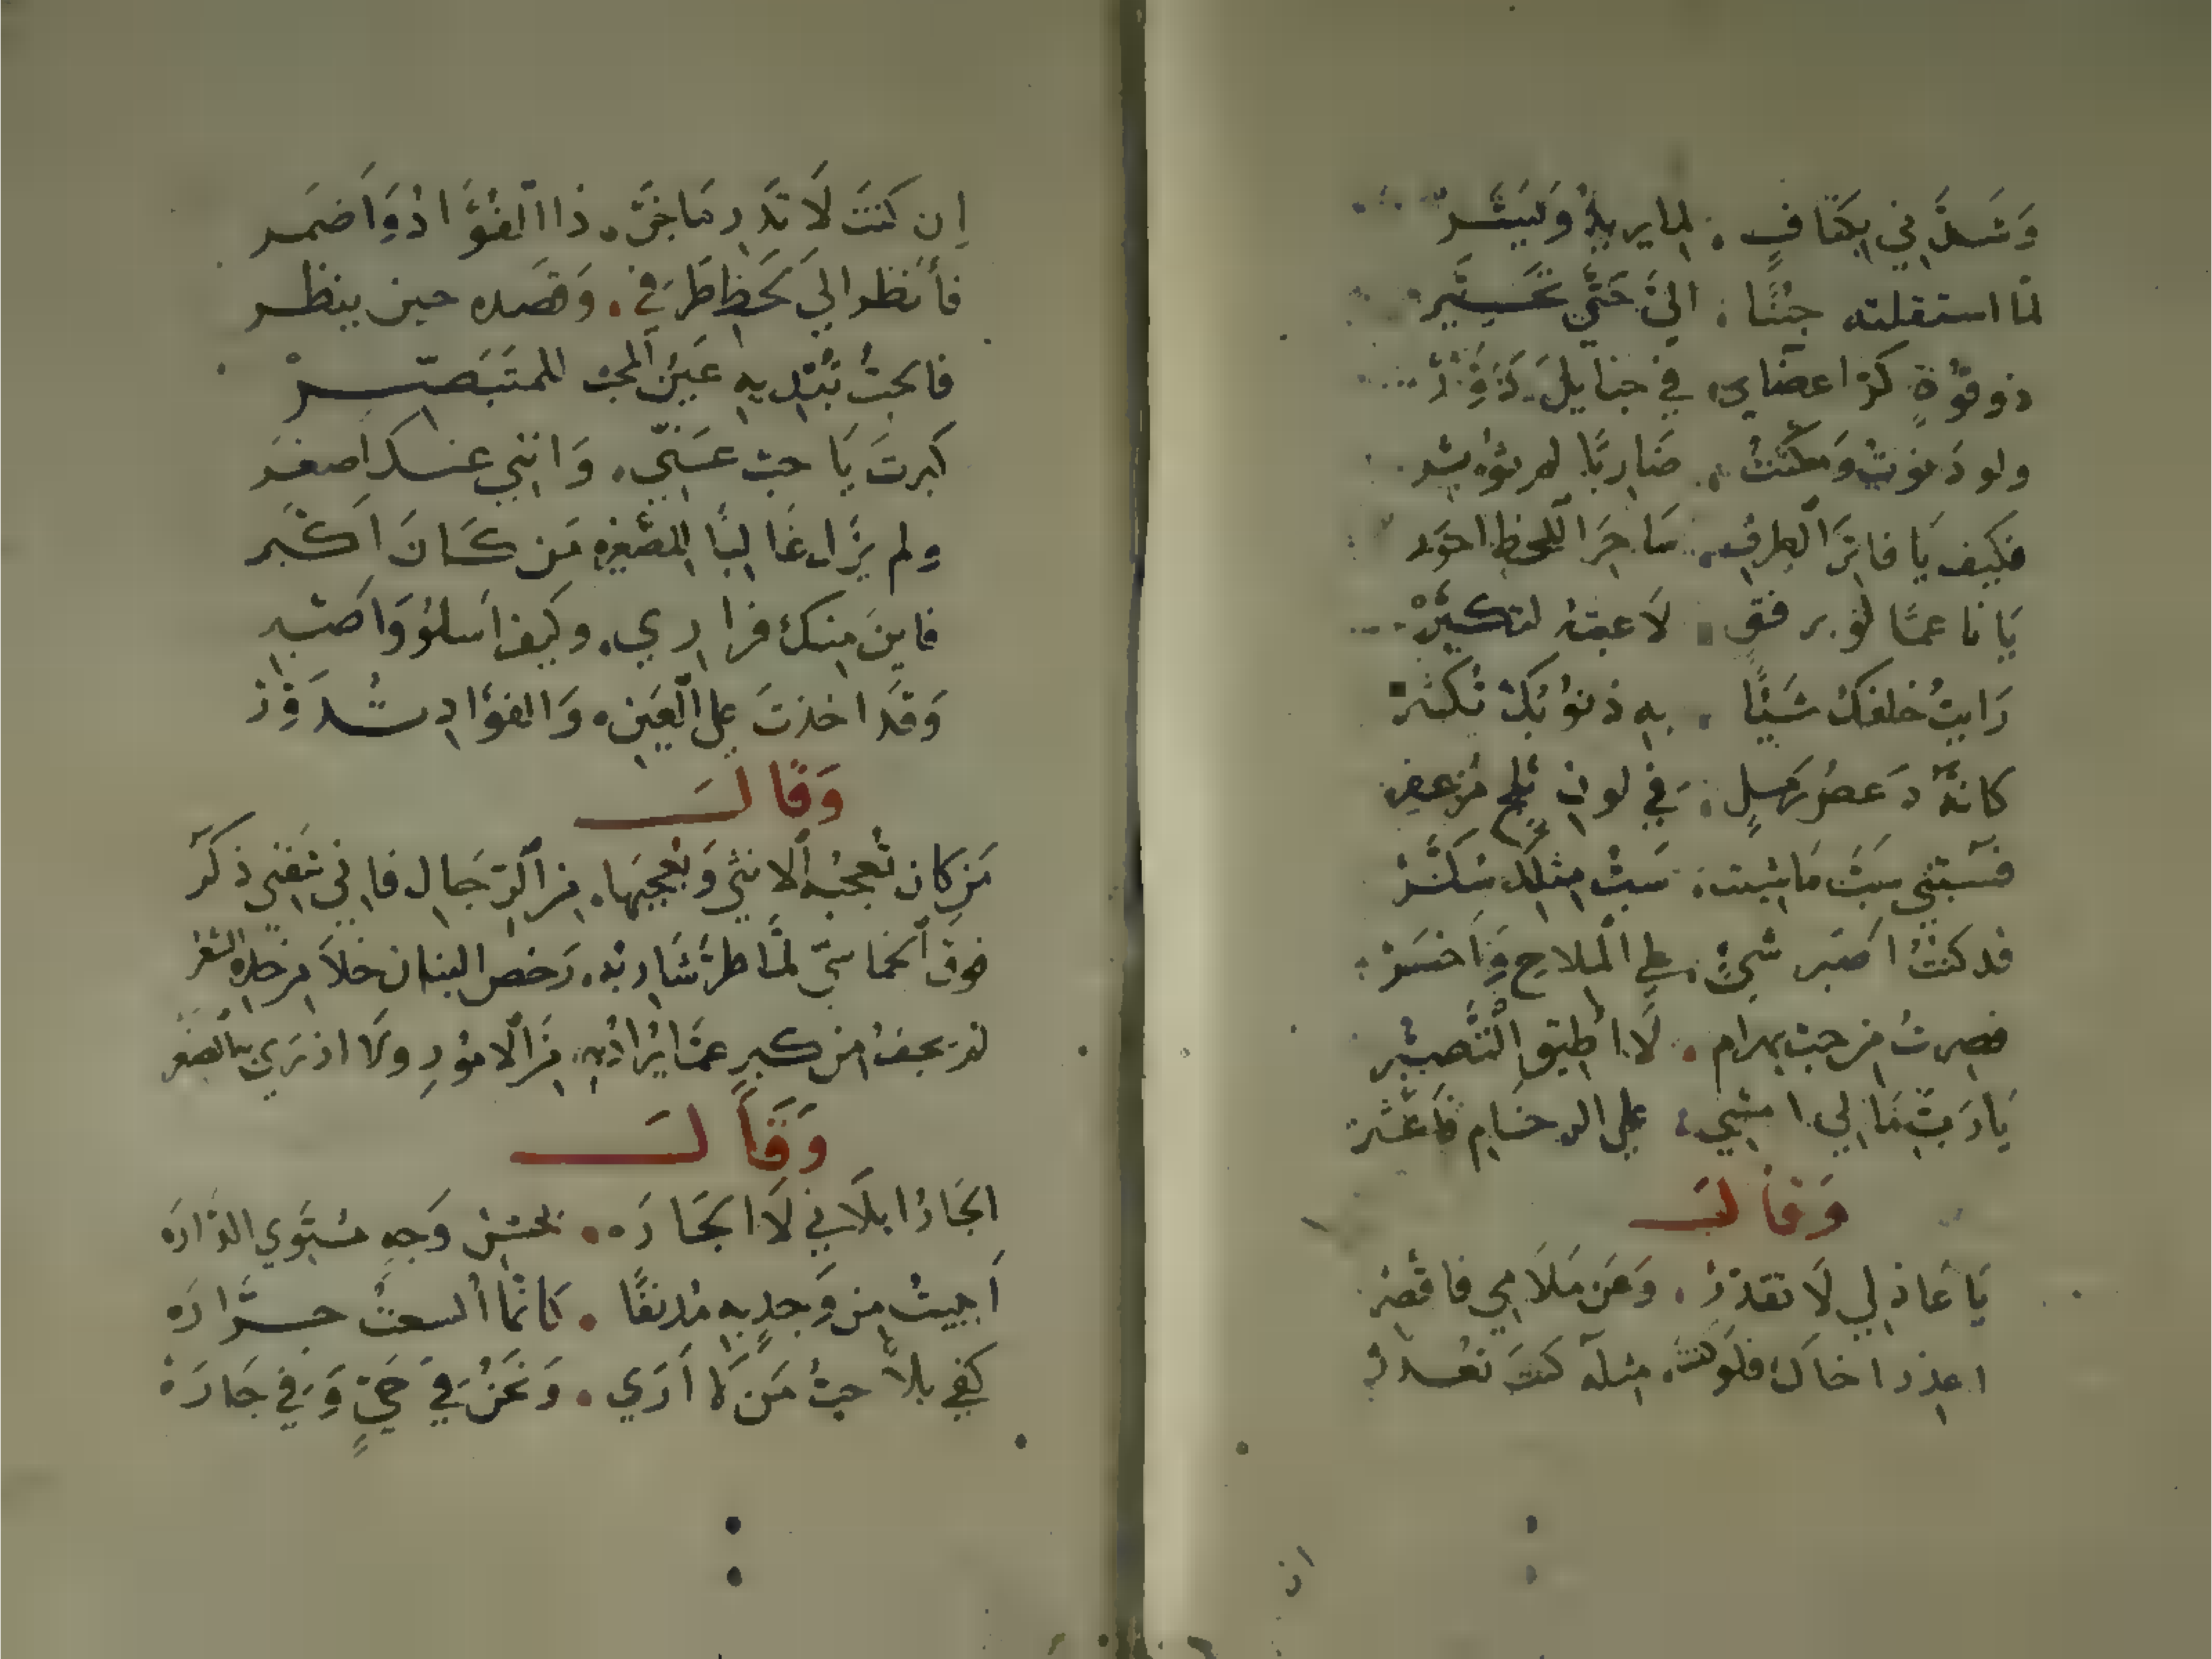 وَشَدَّني بكتافٍ . لما يريدُ وَيَيسَّر
لمّا استقلته جننًا . اليَّ حَتّي
ذو قوّةٍ كرّ اعضاي . في حبايل
ولو دَنوتُ وَمكّنتُ . ضاربًا لم يؤثر
فكيف يَا فاترَ الطرفِ . سَاحَر اللحظِ احوَر
يَا ناعمًا لو برفقٍ . لَاعبته لتكسَّر
رَايتُ خلفكَ شَيئًا . بهِ ذنوبُكَ تكثر
كانهُ دَعصُ رَملٍ . في لونِ ثلجٍ مُزعفر
فسبّني سَبَّ مَا شيت . سَبُّ مثلكَ سُكَّر
قد كنتُ اصبَر شيءٍ . علي الملاحِ وَاَخسَر
فصرتُ من حب بهرام . لَا اطيق التصبّر
يَا رَبّ مَا لي امشي . علي الرخَامِ فَاعثر
وَقَالَ
يَا عَاذِلي لَا تقذرْ . وَعَن مَلَامِي فاقْصِرْ
اعذر اخاكَ فلَو كنتَ . مثلَه كنتَ تعذر
ان
اِن كنتَ لَا تَدرِ مَا جَنَّ . ذا الفُؤَاد وَاَضمَر
فأنظر الي لَحظِ طَرفي . وَقصده حين ينظر
فالحبُّ تبْديهِ عَينُ المحبّ للمتَبَصّر
كبرتَ يَا حبّ عَنّي . وَانني عنك اَصغَر
ولم يزَل غَالبًا للصّغيرِ مَن كَانَ اَكبَر
فاينَ منك فراري . وكيف اَسلُو وَاَصبر
وَقَد اخذتَ علي العَينِ . وَالفؤادِ
وَقَالَ
مَن كان تُعجبُه الانثي وَيُعجبهَا . من الرّجَالِ فاني شفّني ذكَر
فوق الخماسيّ لمّا طرّ شاربُه . رَخص البنان خلاَ من جلدهِ الشعر
لم يجفُ من كبرٍ عمّا يُرَادُ بهِ . مَن الامُورِ ولا ازرَي به الصغر
وَقَالَ
الجَارُ ابلَاني لَا الجَارَه . بحُسْن وَجهٍ مُستَوي الدّارَه
اَبيتُ من وَجدٍ به مُدنفًا . كانّما اُلسعتُ جرّارَه
كفي بلاً حبُّ مَن لا اَرَي . وَنحْنُ في حَيٍّ وَفي حَارَهْ